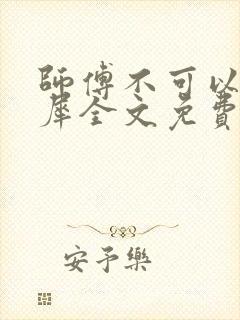 師傅不可以
犀全文免費
安予樂